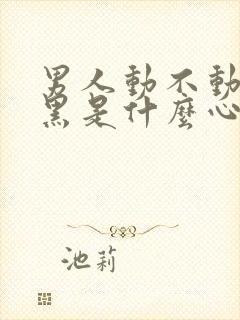 男人動不動
黑是什麼心
池莉